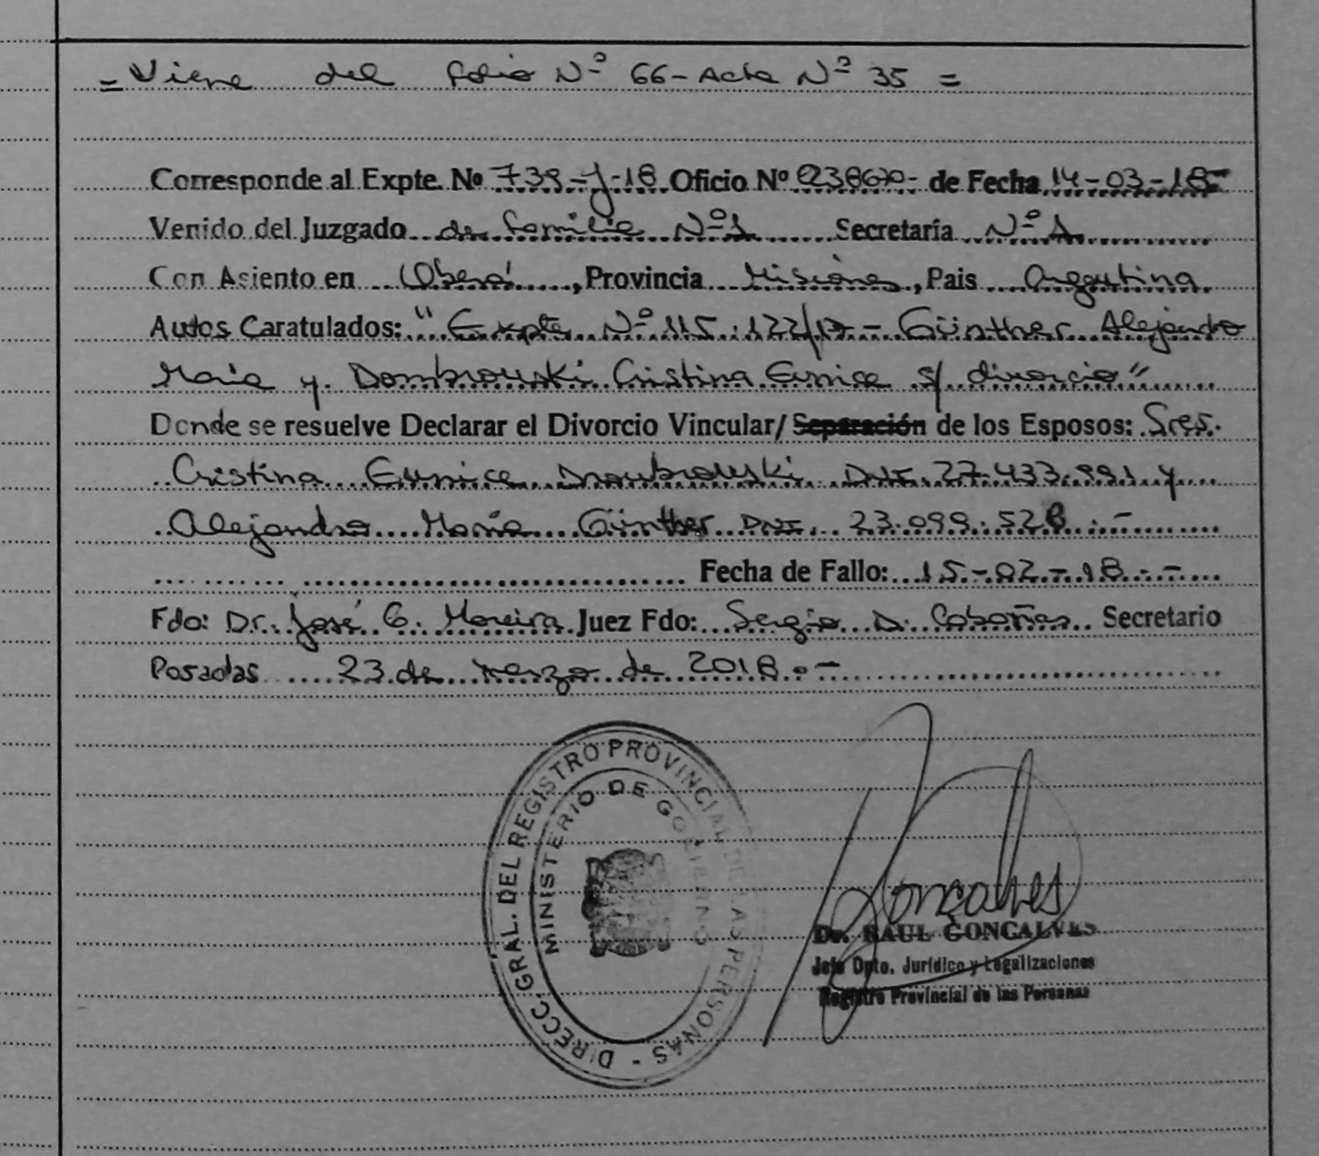 = Viene del folio Nº 66 - Acta Nº 35 =
Corresponde al Expte. Nº 739-J-18 Oficio Nº de Fecha 14-03-18-
Venido del Juzgado de familia Nº1 Secretaría Nº 1
Con Asiento en Oberá, Provincia Misiones, Pais Argentina
Autos Caratulados: "Expte Nº 115.122/17 - Günther Alejandro
María y Dombrowski Cristina Eunice s/ divorcio"
Donde se resuelve Declarar el Divorcio Vincular/ Separación de los Esposos: Sres.
Cristina Eunice DNI. 27.433.991 y
Alejandro María Günther DNI. 23.099.528.-
Fecha de Fallo: 15.-02.-18.-
Fdo: Dr. José G. Moreira Juez Fdo: Sergio D. Cabañas Secretario
Posadas 23 de marzo de 2018.-
DIRECC. GRAL. DEL REGISTRO PROVINCIAL DE LAS PERSONAS -
MINISTERIO DE GOBIERNO
Goncalves
Dr. RAUL GONCALVES
Jefe Dpto. Jurídico y Legalizaciones
Registro Provincial de las Personas